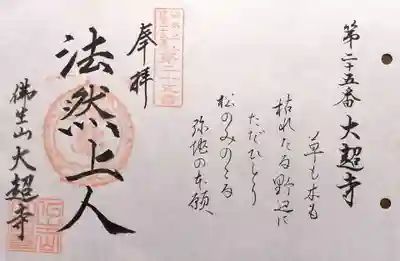 第二五番 大超寺
草も木も
枯れたる野辺に
ただひとり
松のみのこる
弥陀の本願
奉拝
法然上人
佛生山 大超寺